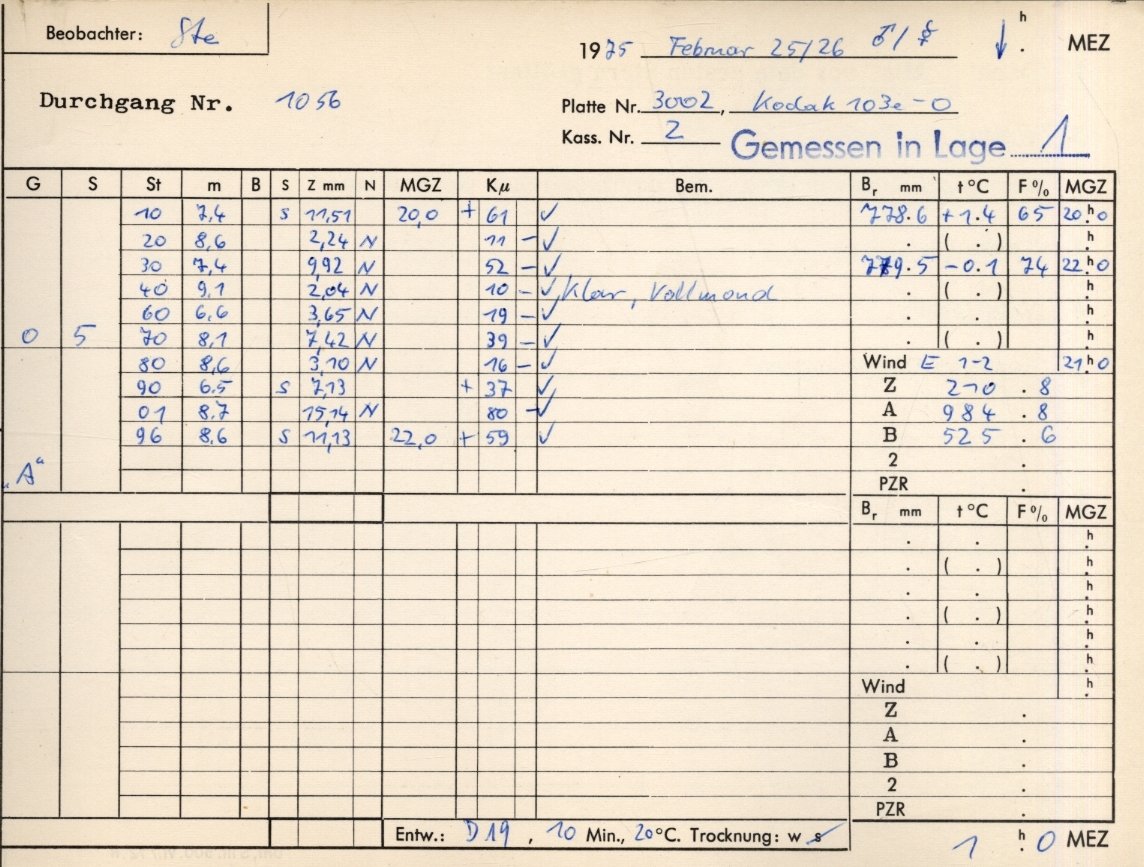 Beobachter: Ste
1975 Februar 25/26 ♂/☿ ↓ h . MEZ
Durchgang Nr. 1056
Platte Nr. 3002, Kodak 103a-O
Kass. Nr. 2
Gemessen in Lage 1
G S St m B S Z mm N MGZ Kμ Bem. Br mm t °C F % MGZ
10 7,4 S 11,51 20,0 + 61 ✓ 778.6 +1.4 65 20h.0
20 8,6 2,24 N 11 - ✓ . ( . ) h.
30 7,4 9,92 N 52 - ✓ 779.5 -0.1 74 22h.0
40 9,1 2,04 N 10 - ✓ Klar, Vollmond . ( . ) h.
60 6,6 3,65 N 19 - ✓ . . h.
0 5 70 8,1 7,42 N 39 - ✓ . ( . ) h.
80 8,6 3,10 N 16 - ✓ Wind E 1-2 21h.0
90 6.5 S 7,13 + 37 ✓ Z 210 . 8
01 8.7 15,14 N 80 - ✓ A 984 . 8
96 8,6 S 11,13 22,0 + 59 ✓ B 525 . 6
„A“ 2 .
PZR .
Br mm t °C F % MGZ
. . h.
. ( . ) h.
. . h.
. ( . ) h.
. . h.
. ( . ) h.
Wind h.
Z .
A .
B .
2 .
PZR .
Entw.: D19, 10 Min., 20°C. Trocknung: w s
1 h. 0 MEZ